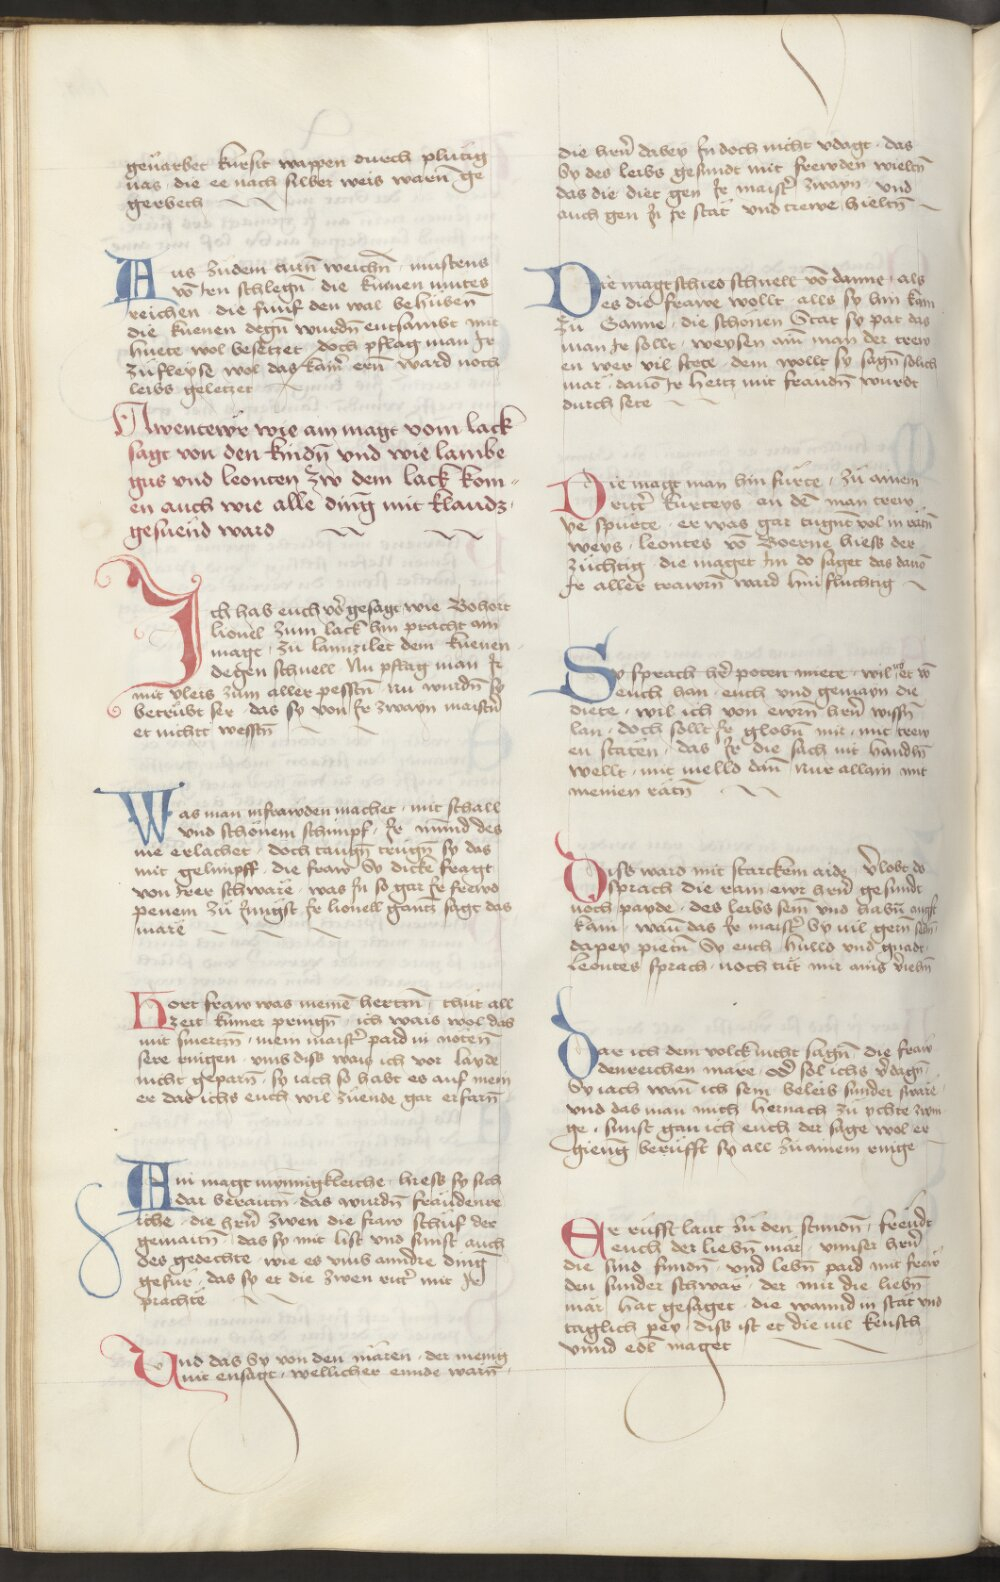 geuarbet kursit wappen durch plutig
uas · die ee nach silber weis warn̄ ge
gerbech
Aus zudem turn̄ weichn̄ · mustens
vō Iren schlegn̄ · die kunen mutes
reichen · die funf den wal behubenn̄
die kuenen degn̄ wurdn̄ entsambt mit
huete wol besetzet · doch pflag man Ir
zufleyse wol das kain̄ ern̄ ward noch
leibs geletzet
Awentewr wie ain magt vom lack
sagt von den kindn̄ vnd wie lambe
gus vnd leonten zw dem lack kom-
en auch wie alle ding mit klaudz
gesuend ward
Ich hab euch vor gesagt wie Bohort
lionel zum lack hin pracht ain
magt · zu lannzilet dem kuenen
degen schnell · Nu pflag man Ir
mit vleis zum aller pesstn̄ · nu wurdn̄ sy
betrubt ser · das sy von Ir zwayn maistn̄
et nichtt wesstn̄
Was man in frawden machet · mit schall
vnd schonem schimpf · Ir mund des
nie erlachet · doch taugn̄ trugn̄ sy das
mit gelimpff · die fraw Sy dicke fragt
von Irer schware · was In so gar Ir frewd
penem zu Iungst Ir lionell gantz sagt das
mare
Hort fraw was meinē hertzn̄ · thut all
zeit kumer pringn̄ · ich wais wol das
mit smertzn̄ · mein maistr̄ paid in noten̄
sere ringen · vmb diss wais ich vor layde
nicht geparn̄ · sy iach so habt es auf mein
er das ichs euch wil zuende gar erfarn̄
Ain magt mynnigkleiche · hiess sy sich
dar beraitn̄ · das wurdn̄ fraudenre
iche · die hrn̄ zwen die fraw schuf der
gemaitn̄ · das sy mit list vnd sunst auch
des gedechte · wie es vmb anndre ding
gefur · das sy et die zwen ritr̄ mit Ir
prachte
Vnd das Sy von den maren · der menig
nit ensagt · wellicher ennde warn̄
die hrn̄ dabey In doch nicht vdagt · das
Sy des leibs gesundt mit frewden wieltn̄
das die diet gen Ir maistr̄ zwayn · vnd
auch gen In Ir stat vnd trewe hieltn̄
Die magt schied schnell vō danne · als
es die frawe wollt · alls sy hin kam
zu Ganne · die schonen Stat sy pat das
man Ir sollt · weysen ain̄ man der trew
en wer vil stete · dem wollt sy sagn̄ solich
mar · dauō Ir hertz mit fraudn̄ wurdt
durch sete
Die magt man hin furte · zu ainem
ritr̄ kurteys · an dē man trew
ye spurte · er was gar tugnt vol in
weys · leontes vō Boerne hiess der
zuchtig · die maget Im do saget das dauō
Ir aller trawrn̄ ward hin fluchtig
Sy sprach hr̄ poten miete · wil
euch han · euch vnd gemayn die
diete · wil ich von ewrn̄ hrn̄ wissn̄
lan · doch sollt Ir globn̄ mir · mit trew
en staten · das Ir die sach nit handln̄
wellt · mit melld dan̄ nur allain mit
meinen ratn̄
Diss ward mit starckem aide · Vlobt do
sprach die rain ewr hrn̄ gesundt
noch payde · des leibs sein̄ vnd habn̄ angst
kain · wan̄ das Ir maistr̄ Sy vil gern sehn̄
dapey piettn̄ Sy euch hulld vnd gnadt
Leontes sprach · noch tut mir ains
Dar ich dem volck nicht sagn̄ die fraw
denreichen mare · odr̄ sol ichs vdagn̄
Sy iach wan̄ ich sein beleib sunder sware
vnd das man mich hernach zu ychte zwin
ge · sunst gan ich euch der sage wol er
gieng berufft sy all zu ainem ringe
Er rufft laut zu den stundn̄ · freudt
euch der liebn̄ mar · vnnser hrn̄
die sind fundn̄ · vnd lebn̄ paid mit frew
den sunder schwar · der mir die liebn̄
mar hat gesaget · die wannd in stat vnd
taglich pey · diss ist et die vil keusch
vnnd edl maget